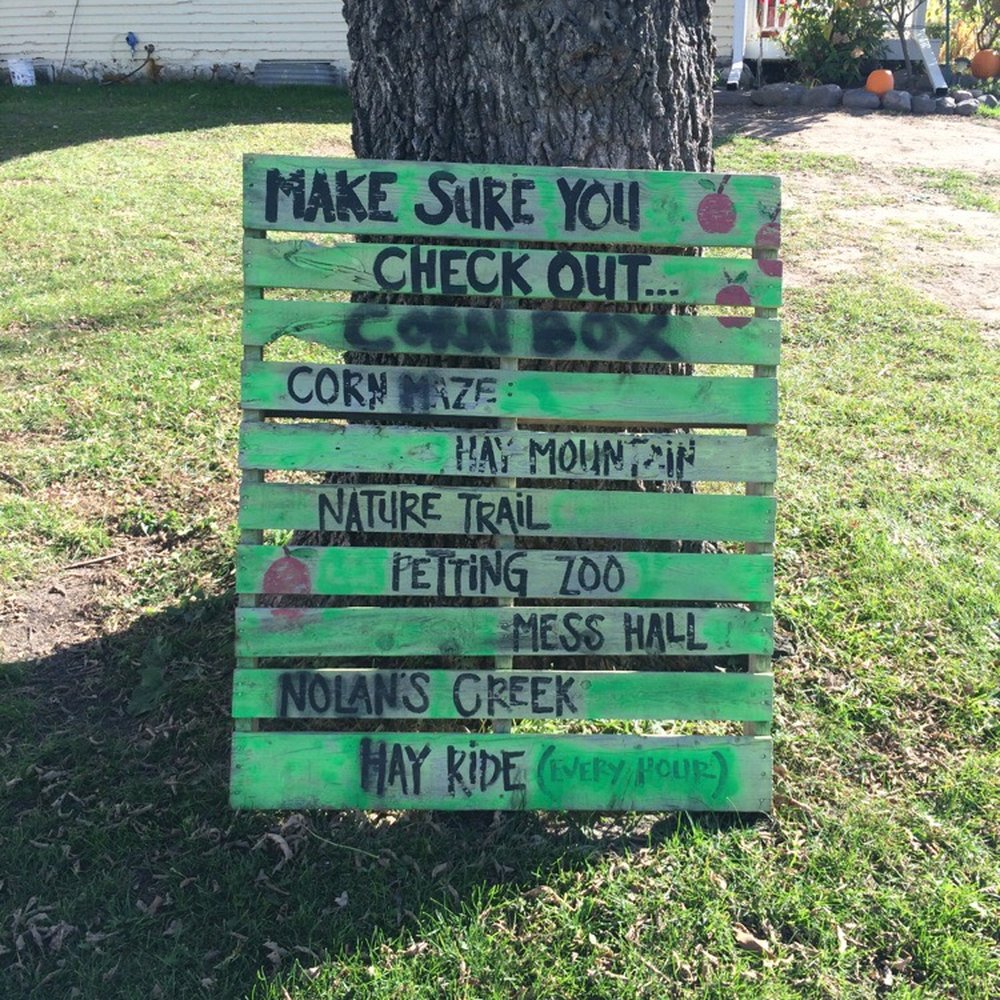 MAKE SURE YOU
CHECK OUT...
CORN BOX
CORN MAZE
HAY MOUNTAIN
NATURE TRAIL
PETTING ZOO
MESS HALL
NOLAN'S CREEK
HAY RIDE (EVERY HOUR)